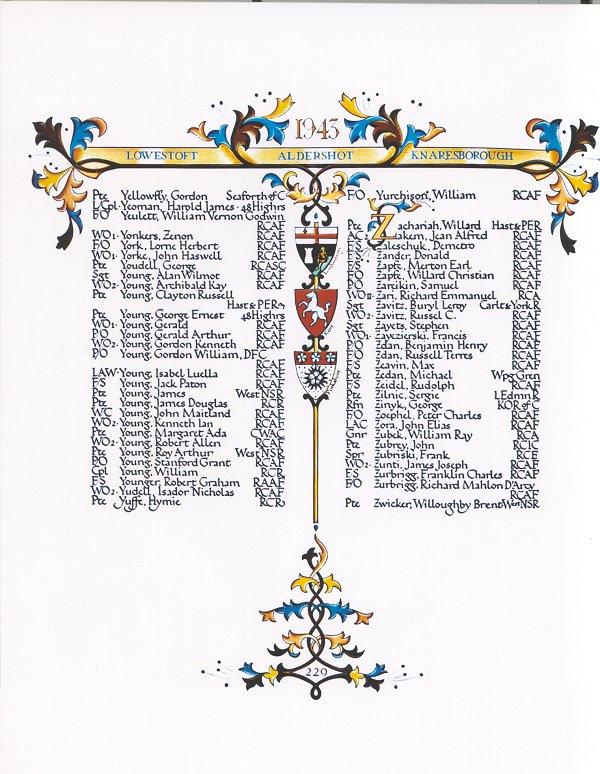 1943
LOWESTOFT ALDERSHOT KNARESBOROUGH
Pte Yellowfly, Gordon Seaforth of C
L/Cpl Yeoman, Harold James 48 Highrs
F/O Yeulett, William Vernon Godwin
RCAF
WO1 Yonkers, Zenon RCAF
F/O York, Lorne Herbert RCAF
WO1 Yorke, John Haswell RCAF
Pte Youdell, George RCASC
Sgt Young, Alan Wilmot RCAF
WO2 Young, Archibald Kay RCAF
Pte Young, Clayton Russell
Hast & PER
Pte Young, George Ernest 48 Highrs
WO1 Young, Gerald RCAF
P/O Young, Gerald Arthur RCAF
WO2 Young, Gordon Kenneth RCAF
P/O Young, Gordon William, DFC
RCAF
LAW Young, Isabel Luella RCAF
F/S Young, Jack Paton RCAF
Pte Young, James West NSR
Pte Young, James Douglas RCR
W/C Young, John Maitland RCAF
WO2 Young, Kenneth Ian RCAF
Pte Young, Margaret Ada CWAC
WO2 Young, Robert Allen RCAF
Pte Young, Roy Arthur West NSR
P/O Young, Stanford Grant RCAF
Cpl Young, William RCR
F/S Younger, Robert Graham RAAF
WO2 Yudell, Isador Nicholas RCAF
Pte Yuffe, Hymie RCR
F/O Yurchison, William RCAF
Pte Zachariah, Willard Hast & PER
AC2 Zadakem, Jean Alfred RCAF
F/S Zaleschuk, Demetro RCAF
F/S Zander, Donald RCAF
F/S Zapfe, Merton Earl RCAF
F/O Zapfe, Willard Christian RCAF
P/O Zareikin, Samuel RCAF
WO II Zari, Richard Emmanuel RCA
Sgt Zavitz, Buryl Leroy Carlt & York R
WO2 Zavitz, Russel C. RCAF
Sgt Zayets, Stephen RCAF
WO1 Zayezierski, Francis RCAF
P/O Zdan, Benjamin Henry RCAF
F/O Zdan, Russell Terres RCAF
F/S Zeavin, Max RCAF
Zedan, Michael Wpg Gren
F/S Zeidel, Rudolph RCAF
Pte Zilnic, Sergie L Edmn R
Rfn Zinyk, George KOR of C
F/O Zoephel, Peter Charles RCAF
LAC Zora, John Elias RCAF
Gnr Zubek, William Ray RCA
Pte Zubrey, John RCIC
Spr Zubriski, Frank RCE
WO2 Zunti, James Joseph RCAF
F/S Zurbrigg, Franklin Charles RCAF
F/O Zurbrigg, Richard Mahlon D'Arcy
RCAF
Pte Zwicker, Willoughby Brent West NSR
229